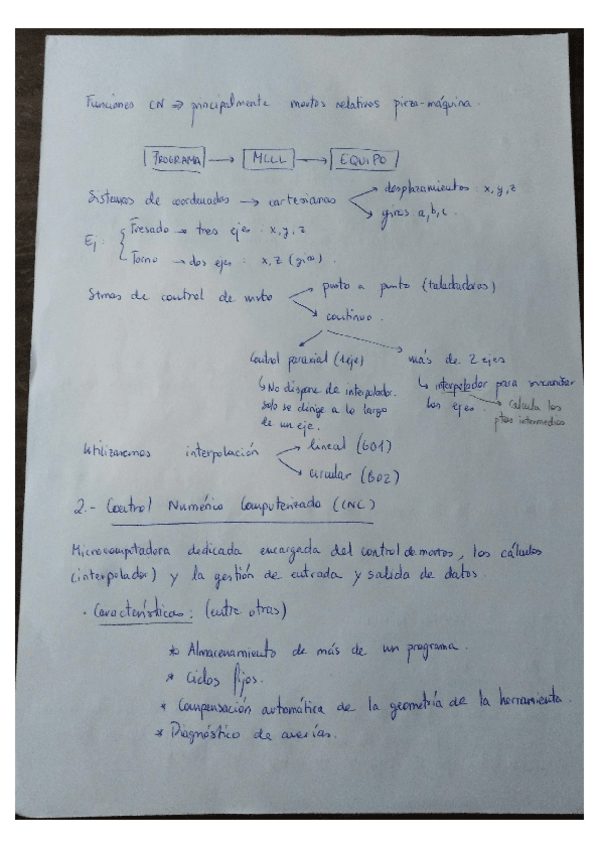 Funciones CN => principalmente mvtos relativos pieza-máquina.
PROGRAMA → MCU → EQUIPO
Sistemas de coordenadas → cartesianas → desplazamientos : x, y, z
→ giros a, b, c.
Ej : Fresado → tres ejes : x, y, z
Torno → dos ejes : x, z (giro).
Stmas de control de mvto → punto a punto (taladradoras)
→ continuo.
Control paraxial (1 eje)
más de 2 ejes
↳ No dispone de interpolador.
Solo se dirige a lo largo
de un eje.
↳ interpolador para
los ejes. → calcula los
ptos intermedios
Utilizaremos interpolación → lineal (G01)
→ circular (G02)
2.- Control Numérico Computerizado (CNC)
Microcomputadora dedicada encargada del control de mvtos, los cálculos
(interpolador) y la gestión de entrada y salida de datos.
· Características: (entre otras)
* Almacenamiento de más de un programa.
* Ciclos fijos.
* Compensación automática de la geometría de la herramienta.
* Diagnóstico de averías.